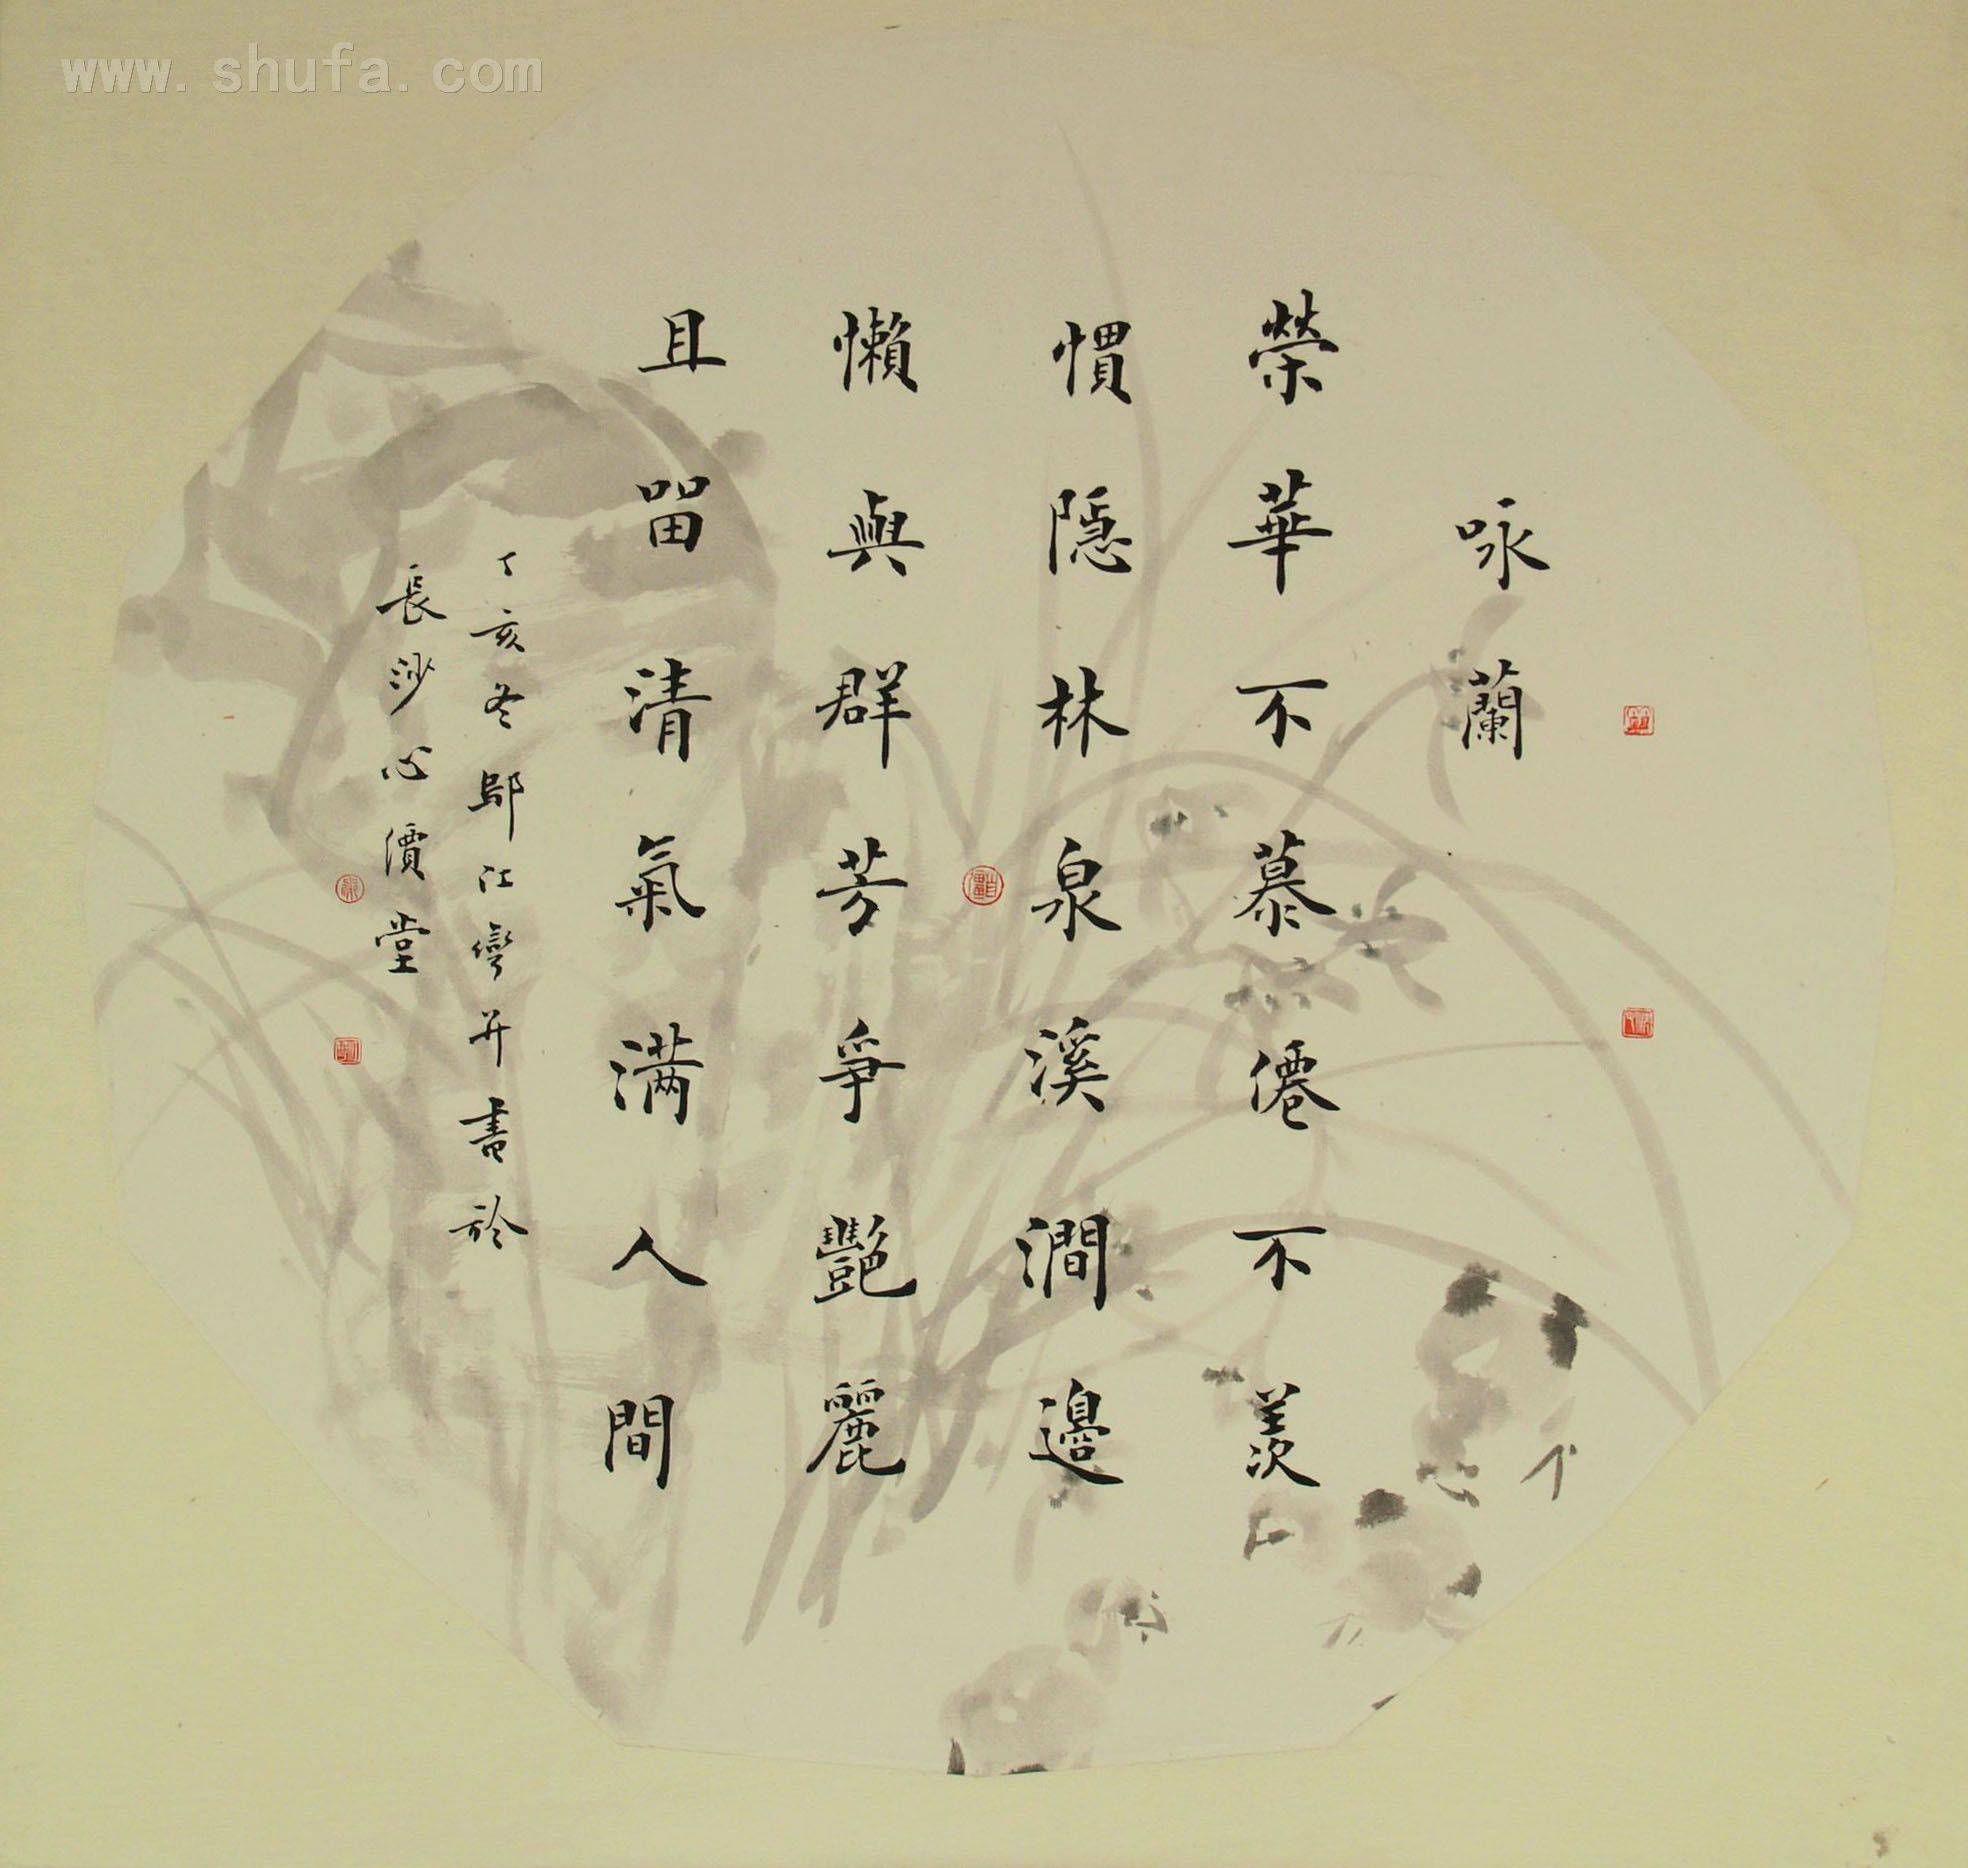 www.shufa.com
咏蘭
榮華不慕僊不羨
慣隱林泉溪澗邊
懶與群芳爭艷麗
且留清氣满人間
丁亥冬鄔江彎并書於
長沙心價堂